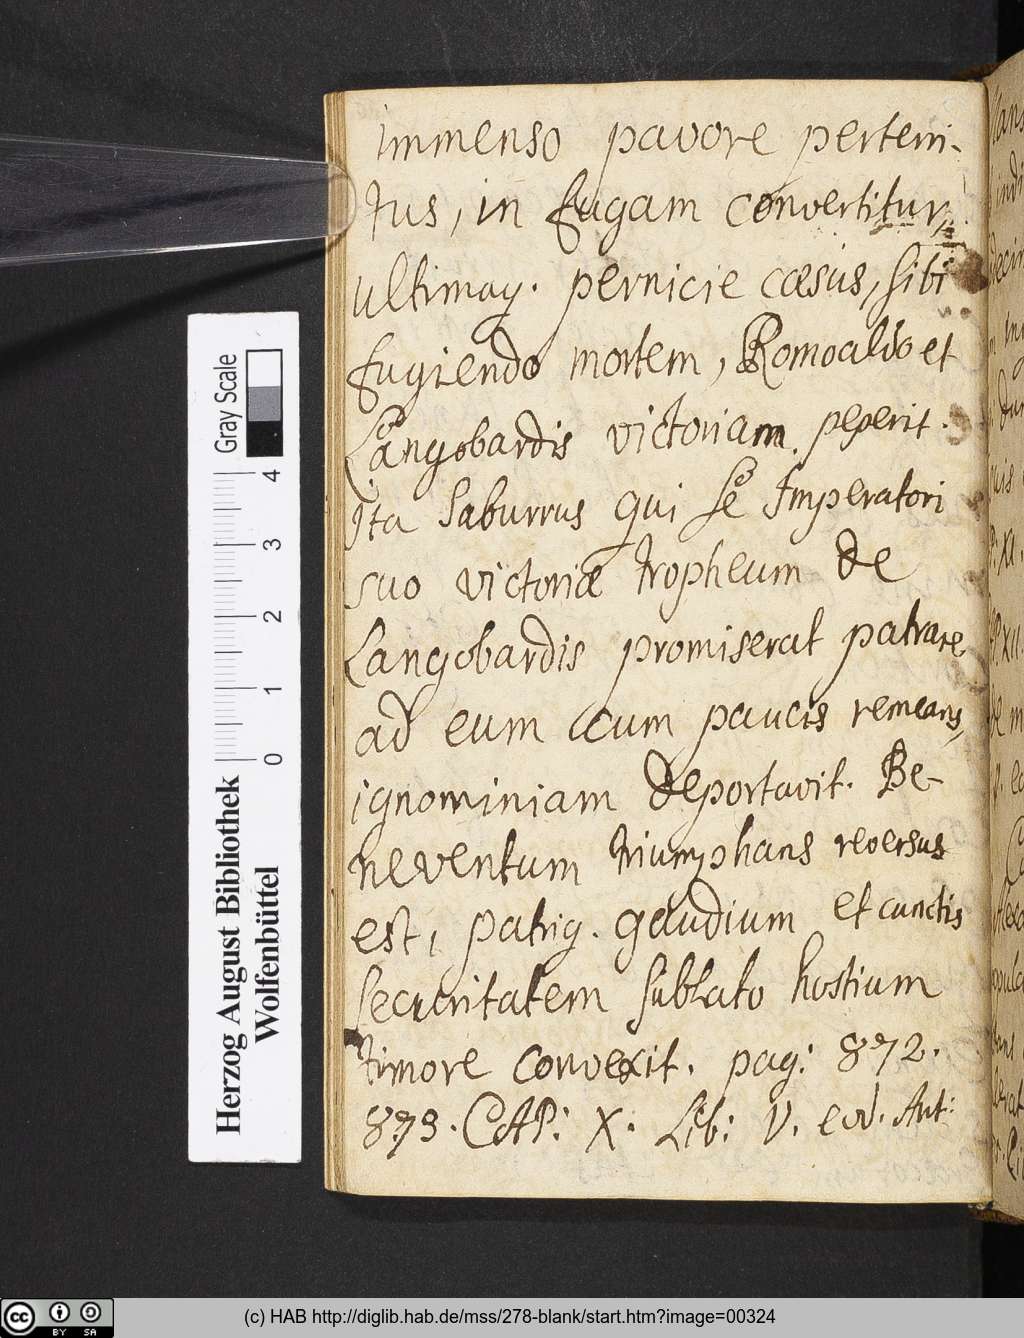 immenso pavore perterri-
tus, in fugam convertitur,
ultimaq. pernicie cæsus, sibi
fugiendo mortem, Romoaldo et
Langobardis victoriam peperit.
Ita Saburrus qui se Imperatori
suo victoriæ tropheum de
Langobardis promiserat patrare,
ad eum cum paucis remeans,
ignominiam deportavit. Be-
neventum triumphans reversus
est, patriq. gaudium et cunctis
securitatem sublato hostium
timore convexit. pag: 872.
873. CAP: X. Lib: V. eod. Aut:
Herzog August Bibliothek
Wolfenbüttel
Gray Scale
0 1 2 3 4
cc BY SA
(c) HAB http://diglib.hab.de/mss/278-blank/start.htm?image=00324